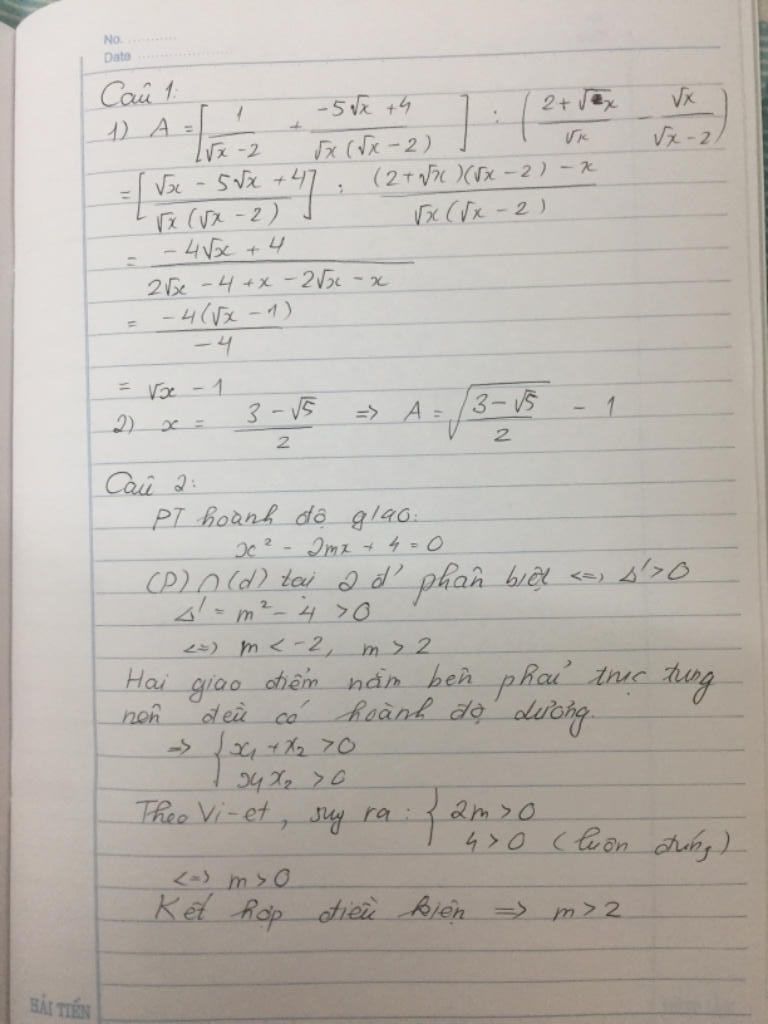 No. ..........
Date ....................
Câu 1:
1) A = [1/(√x - 2) + (-5√x + 4)/(√x(√x - 2))] : ((2 + √x)/√x - √x/(√x - 2))
= [(√x - 5√x + 4)/(√x(√x - 2))] : ((2 + √x)(√x - 2) - x)/(√x(√x - 2))
= (-4√x + 4)/(2√x - 4 + x - 2√x - x)
= (-4(√x - 1))/(-4)
= √x - 1
2) x = (3 - √5)/2 => A = √((3 - √5)/2) - 1
Câu 2:
PT hoành độ giao:
x² - 2mx + 4 = 0
(P) ∩ (d) tại 2 đ' phân biệt <=> Δ' > 0
Δ' = m² - 4 > 0
<=> m < -2, m > 2
Hai giao điểm nằm bên phải trục tung
nên đều có hoành độ dương.
=> { x₁ + x₂ > 0
x₁x₂ > 0
Theo Vi-et, suy ra: { 2m > 0
4 > 0 (luôn đúng)
<=> m > 0
Kết hợp điều kiện => m > 2
HẢI TIẾN